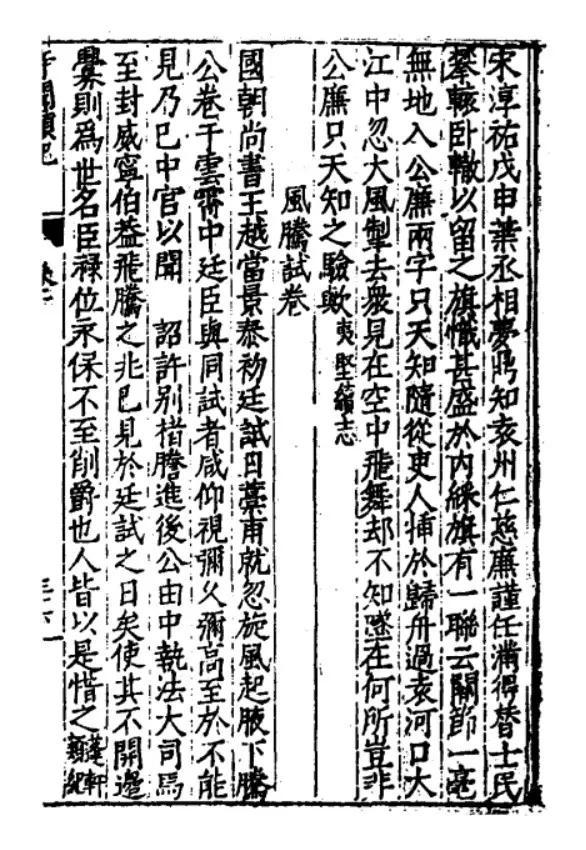 宋淳祐戊申葉丞相夢鼎知袁州仁慈廉謹任滿得替士民
攀轅卧轍以留之旗幟甚盛於內綵旗有一聯云關節一毫
無地入公廉兩字只天知隨從吏人揷於歸舟過袁河口大
江中忽大風掣去衆見在空中飛舞却不知墜在何所豈非
公廉只天知之驗歟夷堅續志
風騰試卷
國朝尚書王越當景泰初廷試日藁甫就忽旋風起腋下騰
公卷于雲霄中廷臣與同試者咸仰視彌久彌高至於不能
見乃已中官以聞 詔許別楷謄進後公由中執法大司馬
至封威寧伯葢飛騰之兆已見於廷試之日矣使其不開邊
釁則爲世名臣祿位永保不至削爵也人皆以是惜之蓬軒
類紀